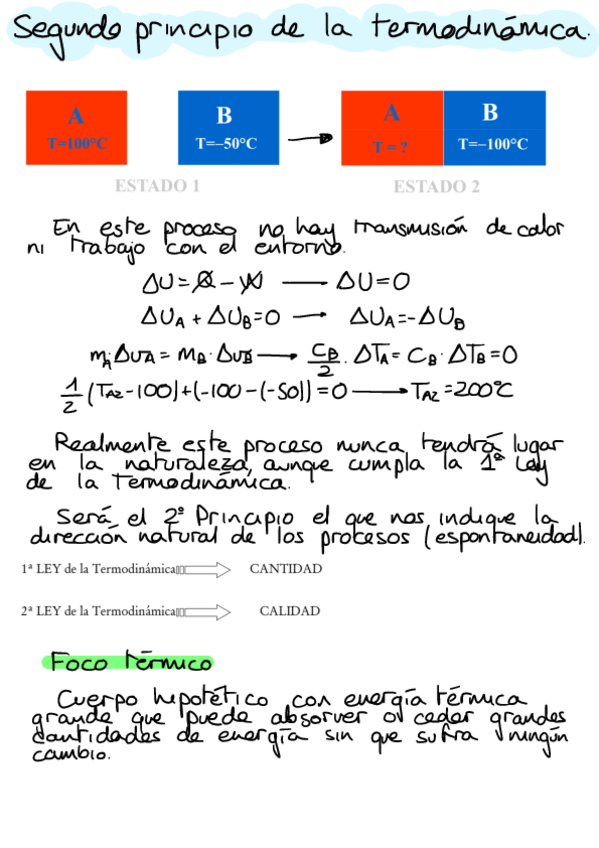 Segundo principio de la termodinámica.
A B A B
T=100°C T=–50°C T = ? T=–100°C
ESTADO 1 ESTADO 2
En este proceso no hay transmisión de calor
ni trabajo con el entorno.
ΔU = Q – W → ΔU=0
ΔU_A + ΔU_B=0 → ΔU_A=-ΔU_B
m_A·Δu_A = m_B·Δu_B → C_B/2 · ΔT_A = C_B · ΔT_B = 0
1/2 (T_A2 - 100)+(-100 - (-50)) = 0 → T_A2 = 200°C
Realmente este proceso nunca tendrá lugar
en la naturaleza, aunque cumpla la 1ª Ley
de la Termodinámica.
Será el 2º Principio el que nos indique la
dirección natural de los procesos (espontaneidad).
1ª LEY de la Termodinámica CANTIDAD
2ª LEY de la Termodinámica CALIDAD
Foco térmico
Cuerpo hipotético con energía térmica
grande que puede absorver o ceder grandes
cantidades de energía sin que sufra ningún
cambio.